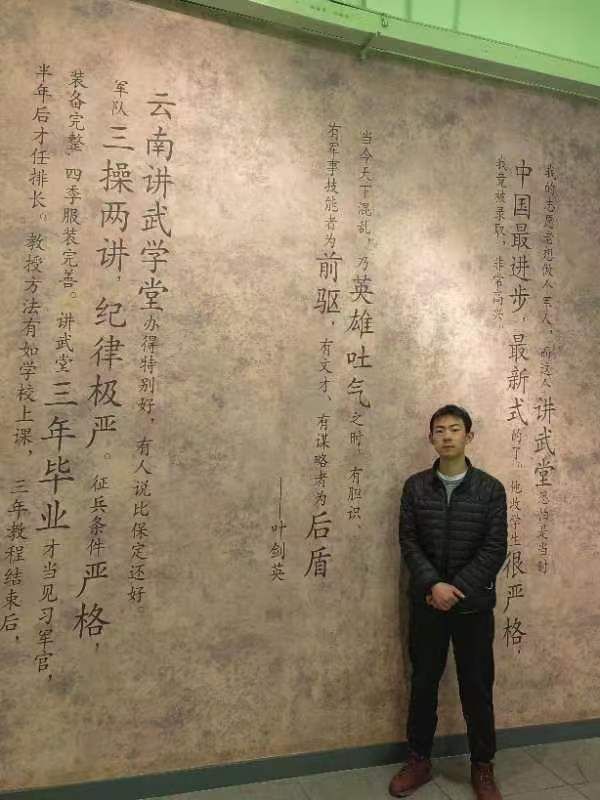 我的志愿老想做个军人，而这个讲武堂恐怕是当时
中国最进步，最新式的了。他收学生很严格，
我竟被录取，非常高兴。
当今天下混乱，乃英雄吐气之时，有胆识、
有军事技能者为前驱，有文才、有谋略者为后盾。
——叶剑英
云南讲武学堂办得特别好，有人说比保定还好。
军队三操两讲，纪律极严。征兵条件严格，
装备完整，四季服装完善。讲武堂三年毕业才当见习军官，
半年后才任排长。教授方法有如学校上课，三年教程结束后，